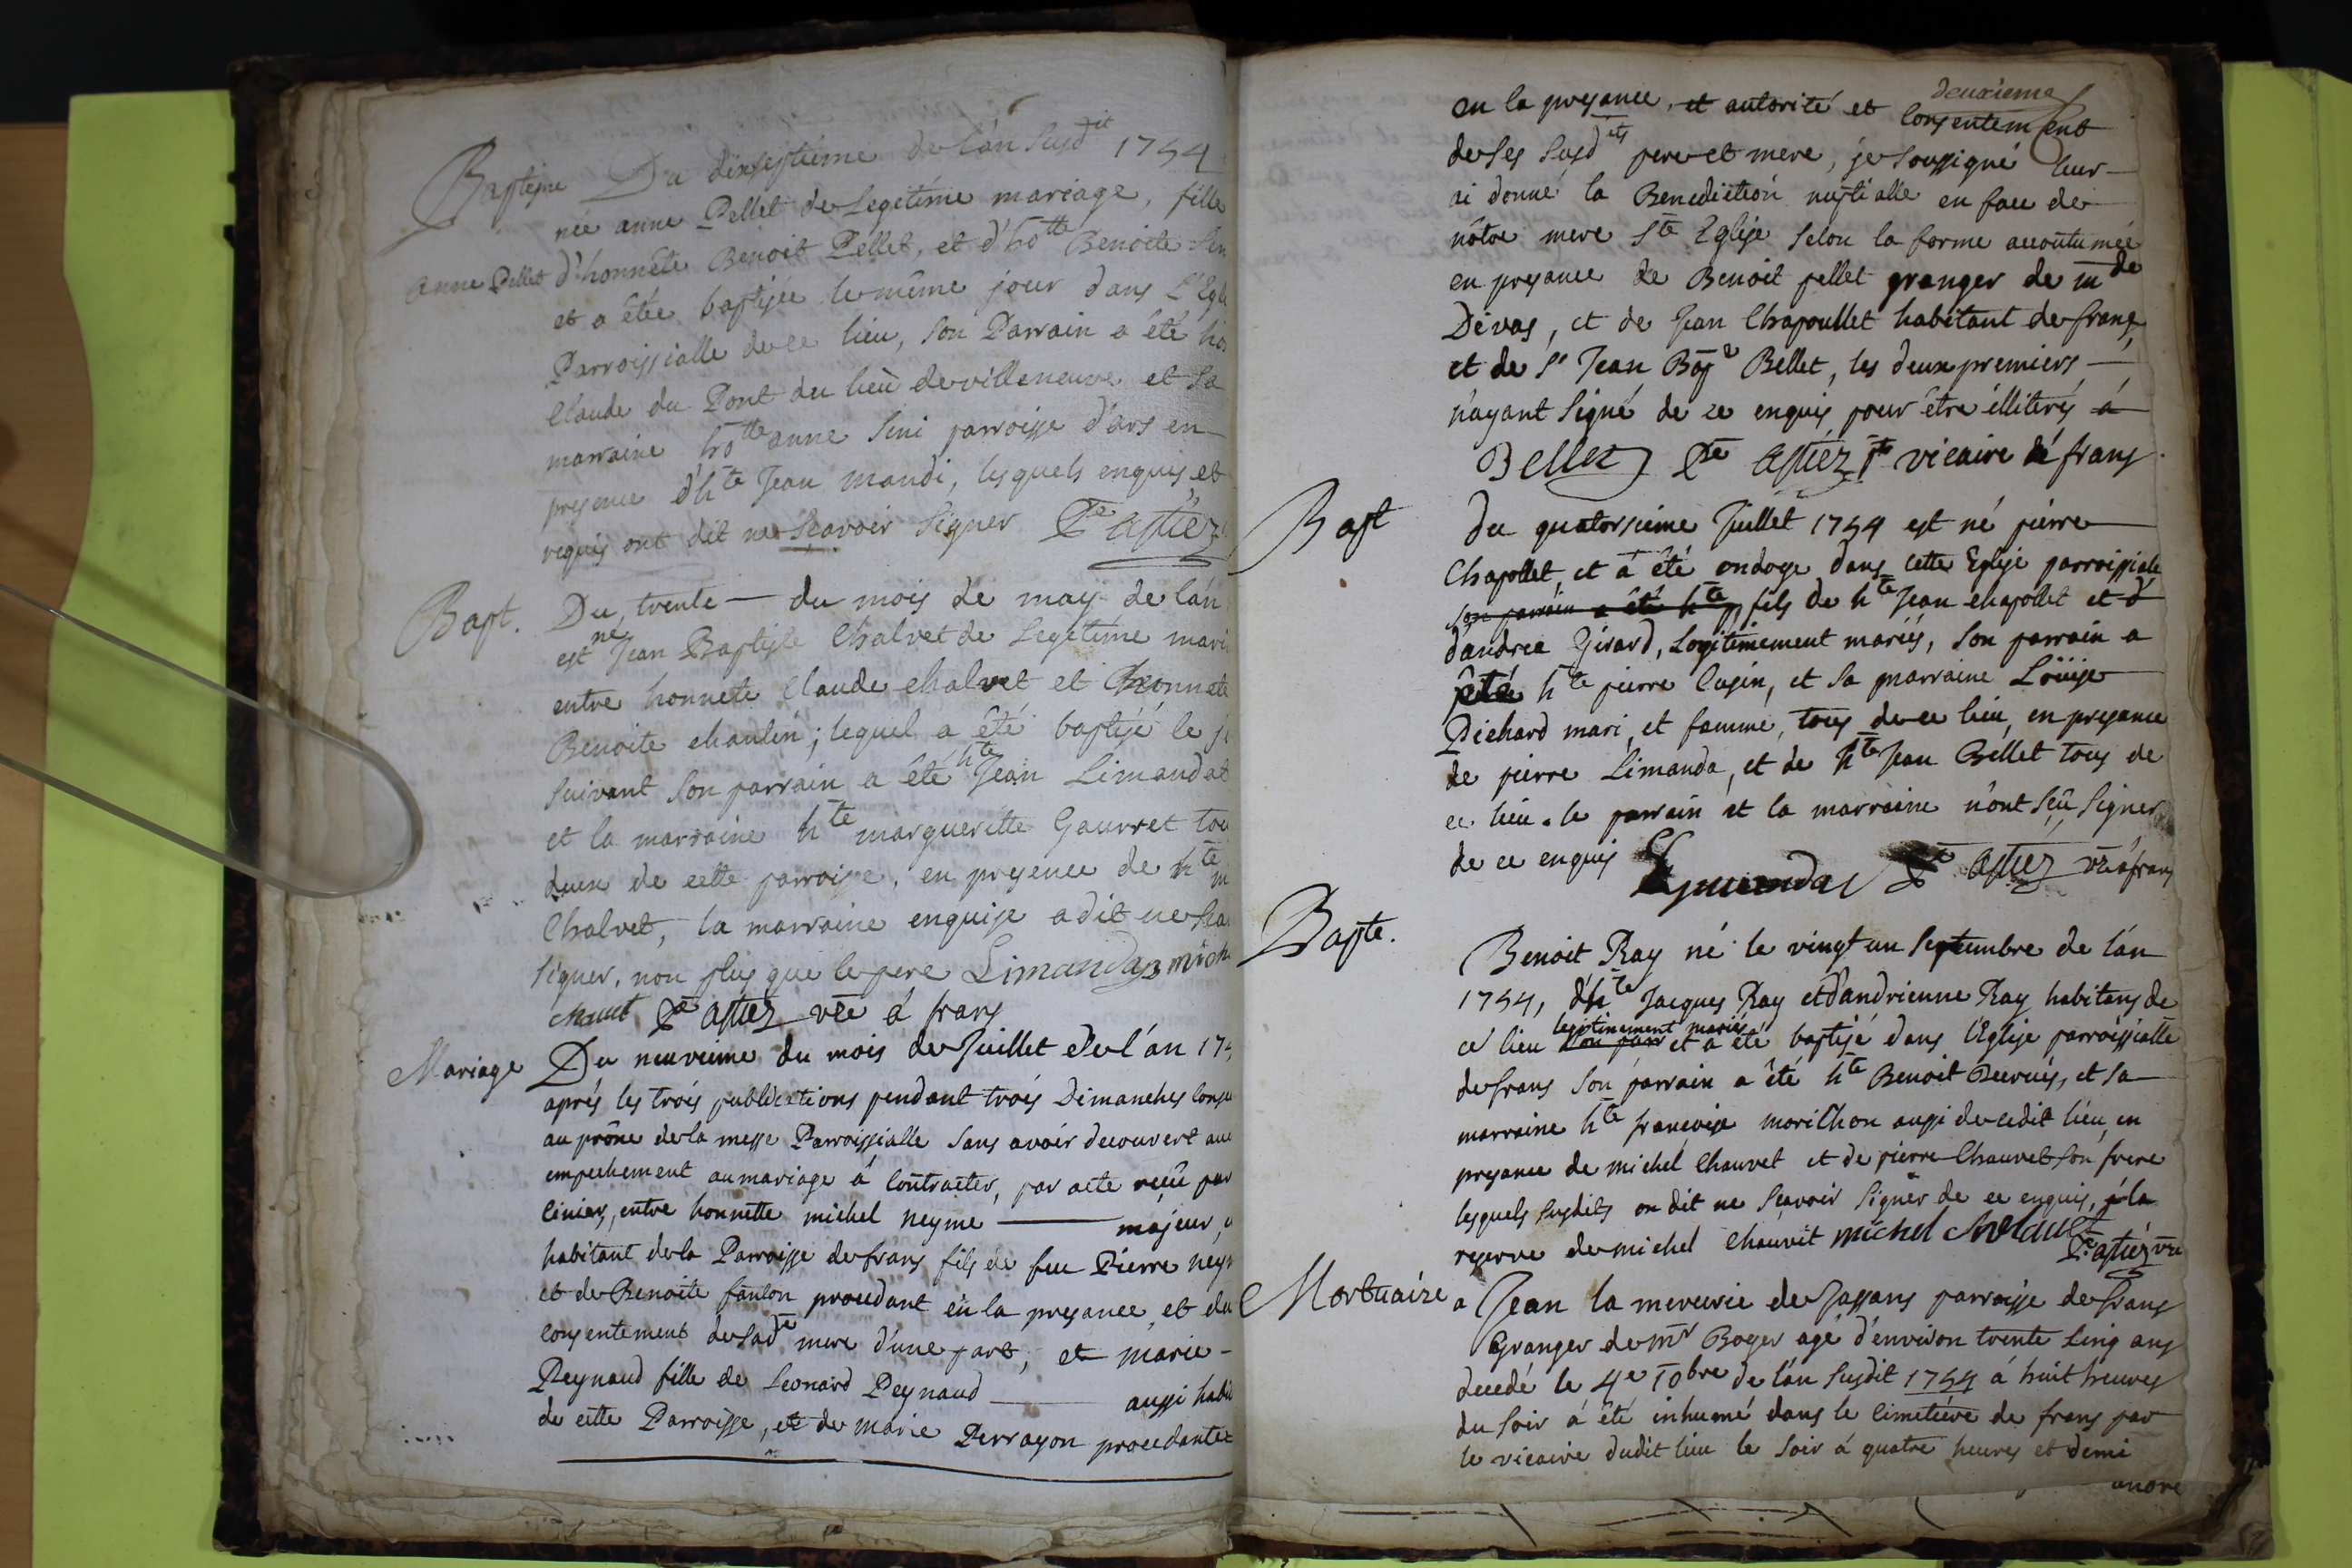 Baptesme Du dixseptieme de l'an susdit 1754
née anne Pellet de Legetime mariage, fille
anne Pellet d'honnête Benoit Pellet, et d'hotte Benoite
et a étée baptisée le même jour dans L'Egl
Parroissialle de ce lieu, son Parrain a été ho
Claude du Pont du lieu de villeneuve et sa
marraine hotte anne Sini parroisse d'ars en
presence d'hte Jean mandi, lesquels enquis et
requis ont dit ne sçavoir signer Pre astiez
Bapt. Du trente — du mois de may de l'an
est né Jean Baptiste Chalvet de Legetime mari
entre honnete Claude chalvet et honnete
Benoite chanlin; lequel a été baptisé le j
suivant son parrain a été hte Jean Limandat
et la marraine hte margueritte Gaurret tou
deux de cette parroisse, en presence de hte m
Chalvet, la marraine enquise a dit ne sca
signer, non plus que le pere Limandas mich
chauut Pre astiez vre á frans
Mariage Du neuvieme du mois de Juillet de l'an 175
aprés les trois publications pendant trois Dimanches conse
au prône de la messe Parroissialle sans avoir decouvert auc
empechement au mariage á contracter, par acte reçu par
Cinier, entre honnette michel neyme — majeur,
habitant de la Parroisse de frans fils de feu Pierre ney
et de Benoite fanlon procedant en la presance, et du
consentement de sadte mere d'une part; et marie -
Reynaud fille de Leonard Reynaud — aussi habi
de cette Parroisse, et de marie Perrayon procedante
deuxieme
en la presance, et autorité et consentement
de ses susdits pere et mere, je soussigné leur
ai donné la Benediction nuptialle en face de
nôtre mere ste Eglise selon la forme accoutumée
en presance de Benoit pellet granger de mde
Devas, et de Jean Chapoullet habitant de frans
et de sr Jean Bapte Bellet, les deux premiers —
n'ayant signé de ce enquis pour être illiterés á
Bellet Pre astiez pre vicaire dé frans
Bapt du quatorsieme Juillet 1754 est né pierre
Chapollet, et a été ondoye dans cette Eglise parroissiale
son parrain a été hte fils de hte Jean chapollet et d
d'andrea Girard, Legitimement mariés, son parrain a
été hte pierre Cusin, et sa marraine Loüise
Pichard mari, et famme, tous de ce lieu, en presance
de pierre Limanda, et de hte Jean Bellet tous de
ce lieu. le parrain et la marraine n'ont sçu signer
de ce enquis Lymanda Pre astiez vre á frans
Bapte. Benoit Ray né le vingt un Septembre de l'an
1754, d'hte Jacques Ray et d'andrienne Ray habitans de
legitimement mariés
ce lieu son parr et a été baptisé dans l'Eglise parroissialle
de frans son parrain a été hte Benoit Decrues, et sa
marraine hte francoise morilhon aussi de cedit lieu, en
presance de michel Chauvet et de pierre Chauvet son frere
lesquels susdits on dit ne sçavoir signer de ce enquis, á la
reserve de michel Chauvit michel Chvlault
Pre astiez vre
Mortuaire a Jean la mercurie de Jassans parroisse de frans
Granger de mr Boyer agé d'environ trente sinq ans
decedé le 4e 10bre de l'an susdit 1754 á huit heures
du soir á été inhumé dans le Cimetiére de frans par
le vicaire dudit lieu le soir á quatre heures et demi